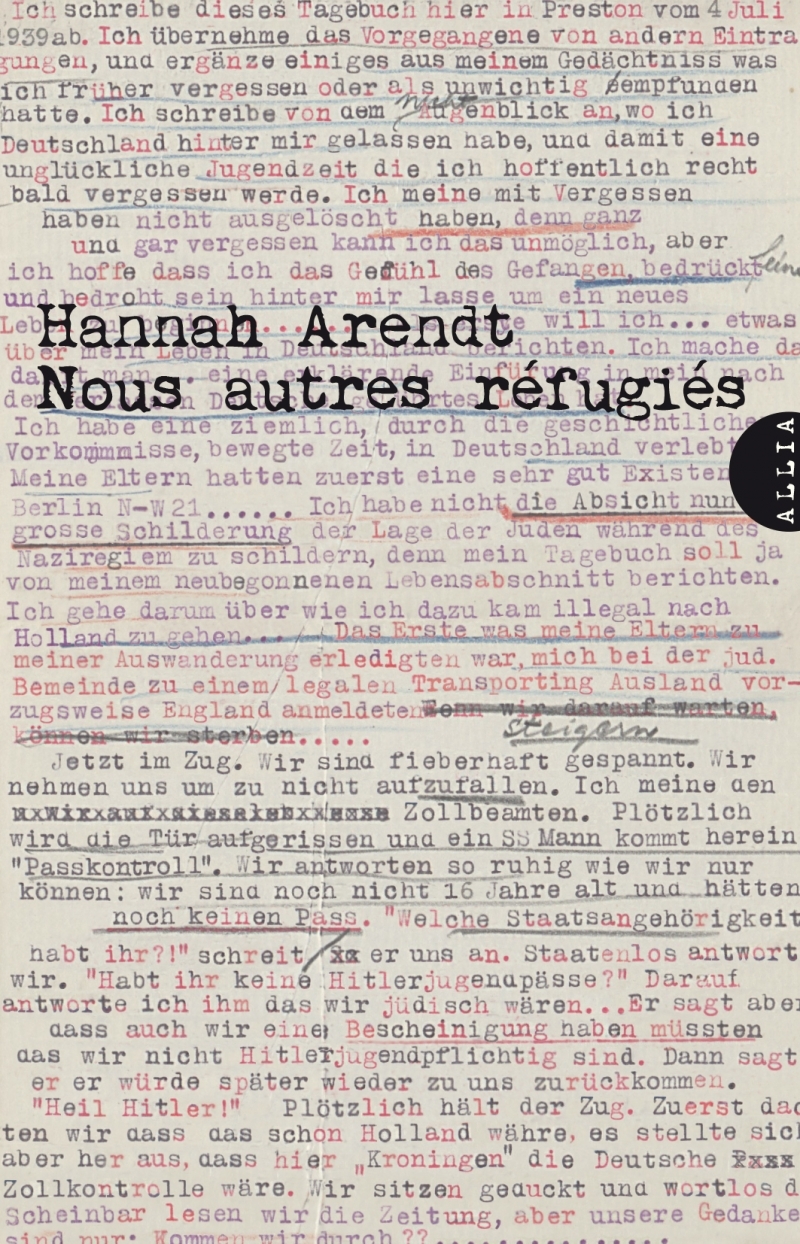 Ich schreibe dieses Tagebuch hier in Preston vom 4 Juli
1939ab. Ich übernehme das Vorgegangene von andern Eintra
gungen, und ergänze einiges aus meinem Gedächtniss was
ich früher vergessen oder als unwichtig empfunden
nicht
hatte. Ich schreibe von dem Augenblick an, wo ich
Deutschland hinter mir gelassen habe, und damit eine
unglückliche Jugendzeit die ich hoffentlich recht
bald vergessen werde. Ich meine mit Vergessen
haben nicht ausgelöscht haben, denn ganz
und gar vergessen kann ich das unmöglich, aber
ich hoffe dass ich das Gefühl des Gefangen, bedrückt
und bedroht sein hinter mir lasse um ein neues
Hannah Arendt
will ich... etwas
über mein Leben in Deutschland berichten. Ich mache da
Nous autres réfugiés
Ich habe eine ziemlich, durch die geschichtliche
Vorkommmisse, bewegte Zeit, in Deutschland verlebt
ALLIA
Meine Eltern hatten zuerst eine sehr gut Existen
Berlin N-W21...... Ich habe nicht die Absicht nun
grosse Schilderung der Lage der Juden während des
Naziregiem zu schildern, denn mein Tagebuch soll ja
von meinem neubegonnenen Lebensabschnitt berichten.
Ich gehe darum über wie ich dazu kam illegal nach
Holland zu gehen... Das Erste was meine Eltern zu
meiner Auswanderung erledigten war, mich bei der jud.
Bemeinde zu einem/legalen Transporting Ausland vor-
zugsweise England anmeldeten Wenn wir darauf warten,
können wir sterben..... steigern
Jetzt im Zug. Wir sind fieberhaft gespannt. Wir
nehmen uns um zu nicht aufzufallen. Ich meine den
Zollbeamten. Plötzlich
wird die Tür aufgerissen und ein SS Mann kommt herein
"Passkontroll". Wir antworten so ruhig wie wir nur
können: wir sind noch nicht 16 Jahre alt und hätten
noch keinen Pass. "Welche Staatsangehörigkeit
habt ihr?!" schreit er uns an. Staatenlos antwort
wir. "Habt ihr keine Hitlerjugendpässe?" Darauf
antworte ich ihm das wir jüdisch wären...Er sagt aber
dass auch wir eine Bescheinigung haben müssten
das wir nicht Hitlerjugendpflichtig sind. Dann sagt
er er würde später wieder zu uns zurückkommen.
"Heil Hitler!" Plötzlich hält der Zug. Zuerst dac
ten wir dass das schon Holland währe, es stellte sich
aber her aus, dass hier „Kroningen" die Deutsche
Zollkontrolle wäre. Wir sitzen geduckt und wortlos d
Scheinbar lesen wir die Zeitung, aber unsere Gedanke
sind nur: Kommen wir durch ??..............